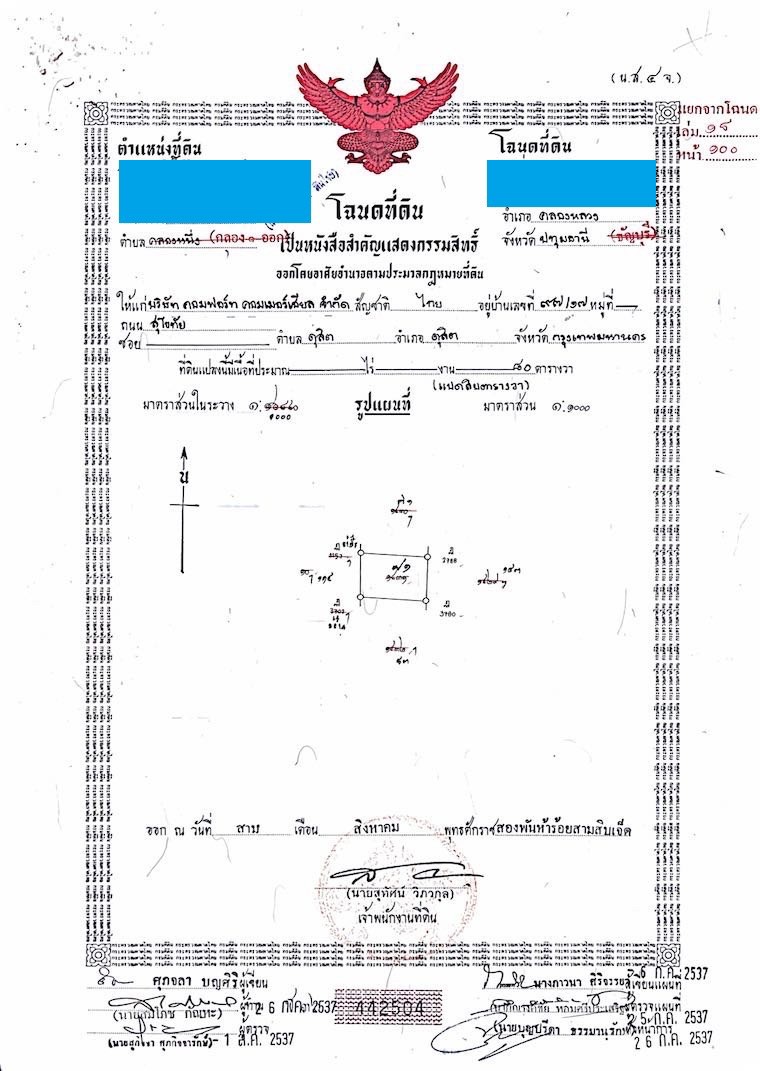 (น.ส. ๔ จ.)
แยกจากโฉนด
เล่ม ๑๘
หน้า ๑๐๐
ตำแหน่งที่ดิน
โฉนดที่ดิน
โฉนดที่ดิน
อำเภอ คลองหลวง
ตำบล คลองหนึ่ง (คลอง ๑ ออก)
เป็นหนังสือสำคัญแสดงกรรมสิทธิ์
จังหวัด ปทุมธานี (ธัญบุรี)
ออกโดยอาศัยอำนาจตามประมวลกฎหมายที่ดิน
ให้แก่ บริษัท คอมฟอร์ท คอมเมอร์เชียล จำกัด สัญชาติ ไทย อยู่บ้านเลขที่ ๙๗/๒๗ หมู่ที่
ถนน สุโขทัย
ซอย ตำบล ดุสิต อำเภอ ดุสิต จังหวัด กรุงเทพมหานคร
ที่ดินแปลงนี้มีเนื้อที่ประมาณ ไร่ งาน ๘๐ ตารางวา
(แปดสิบตารางวา)
มาตราส่วนในระวาง ๑: ๑๐๐๐
รูปแผนที่
มาตราส่วน ๑: ๑๐๐๐
น
3788
3780
ออก ณ วันที่ สาม เดือน สิงหาคม พุทธศักราช สองพันห้าร้อยสามสิบเจ็ด
(นายสุทัศน์ วิภวกุล)
เจ้าพนักงานที่ดิน
ศุภจลา บุญศิริ ผู้เขียน
6 ก.ค. 2537
ผู้เขียนแผนที่
2 6 ก.ค. 2537
442504
ผู้ตรวจแผนที่
25 ก.ค. 2537
ผู้ตรวจ
(นายสุกิจจา ศุภกิจจารักษ์) - 1 ส.ค. 2537
2 6 ก.ค. 2537